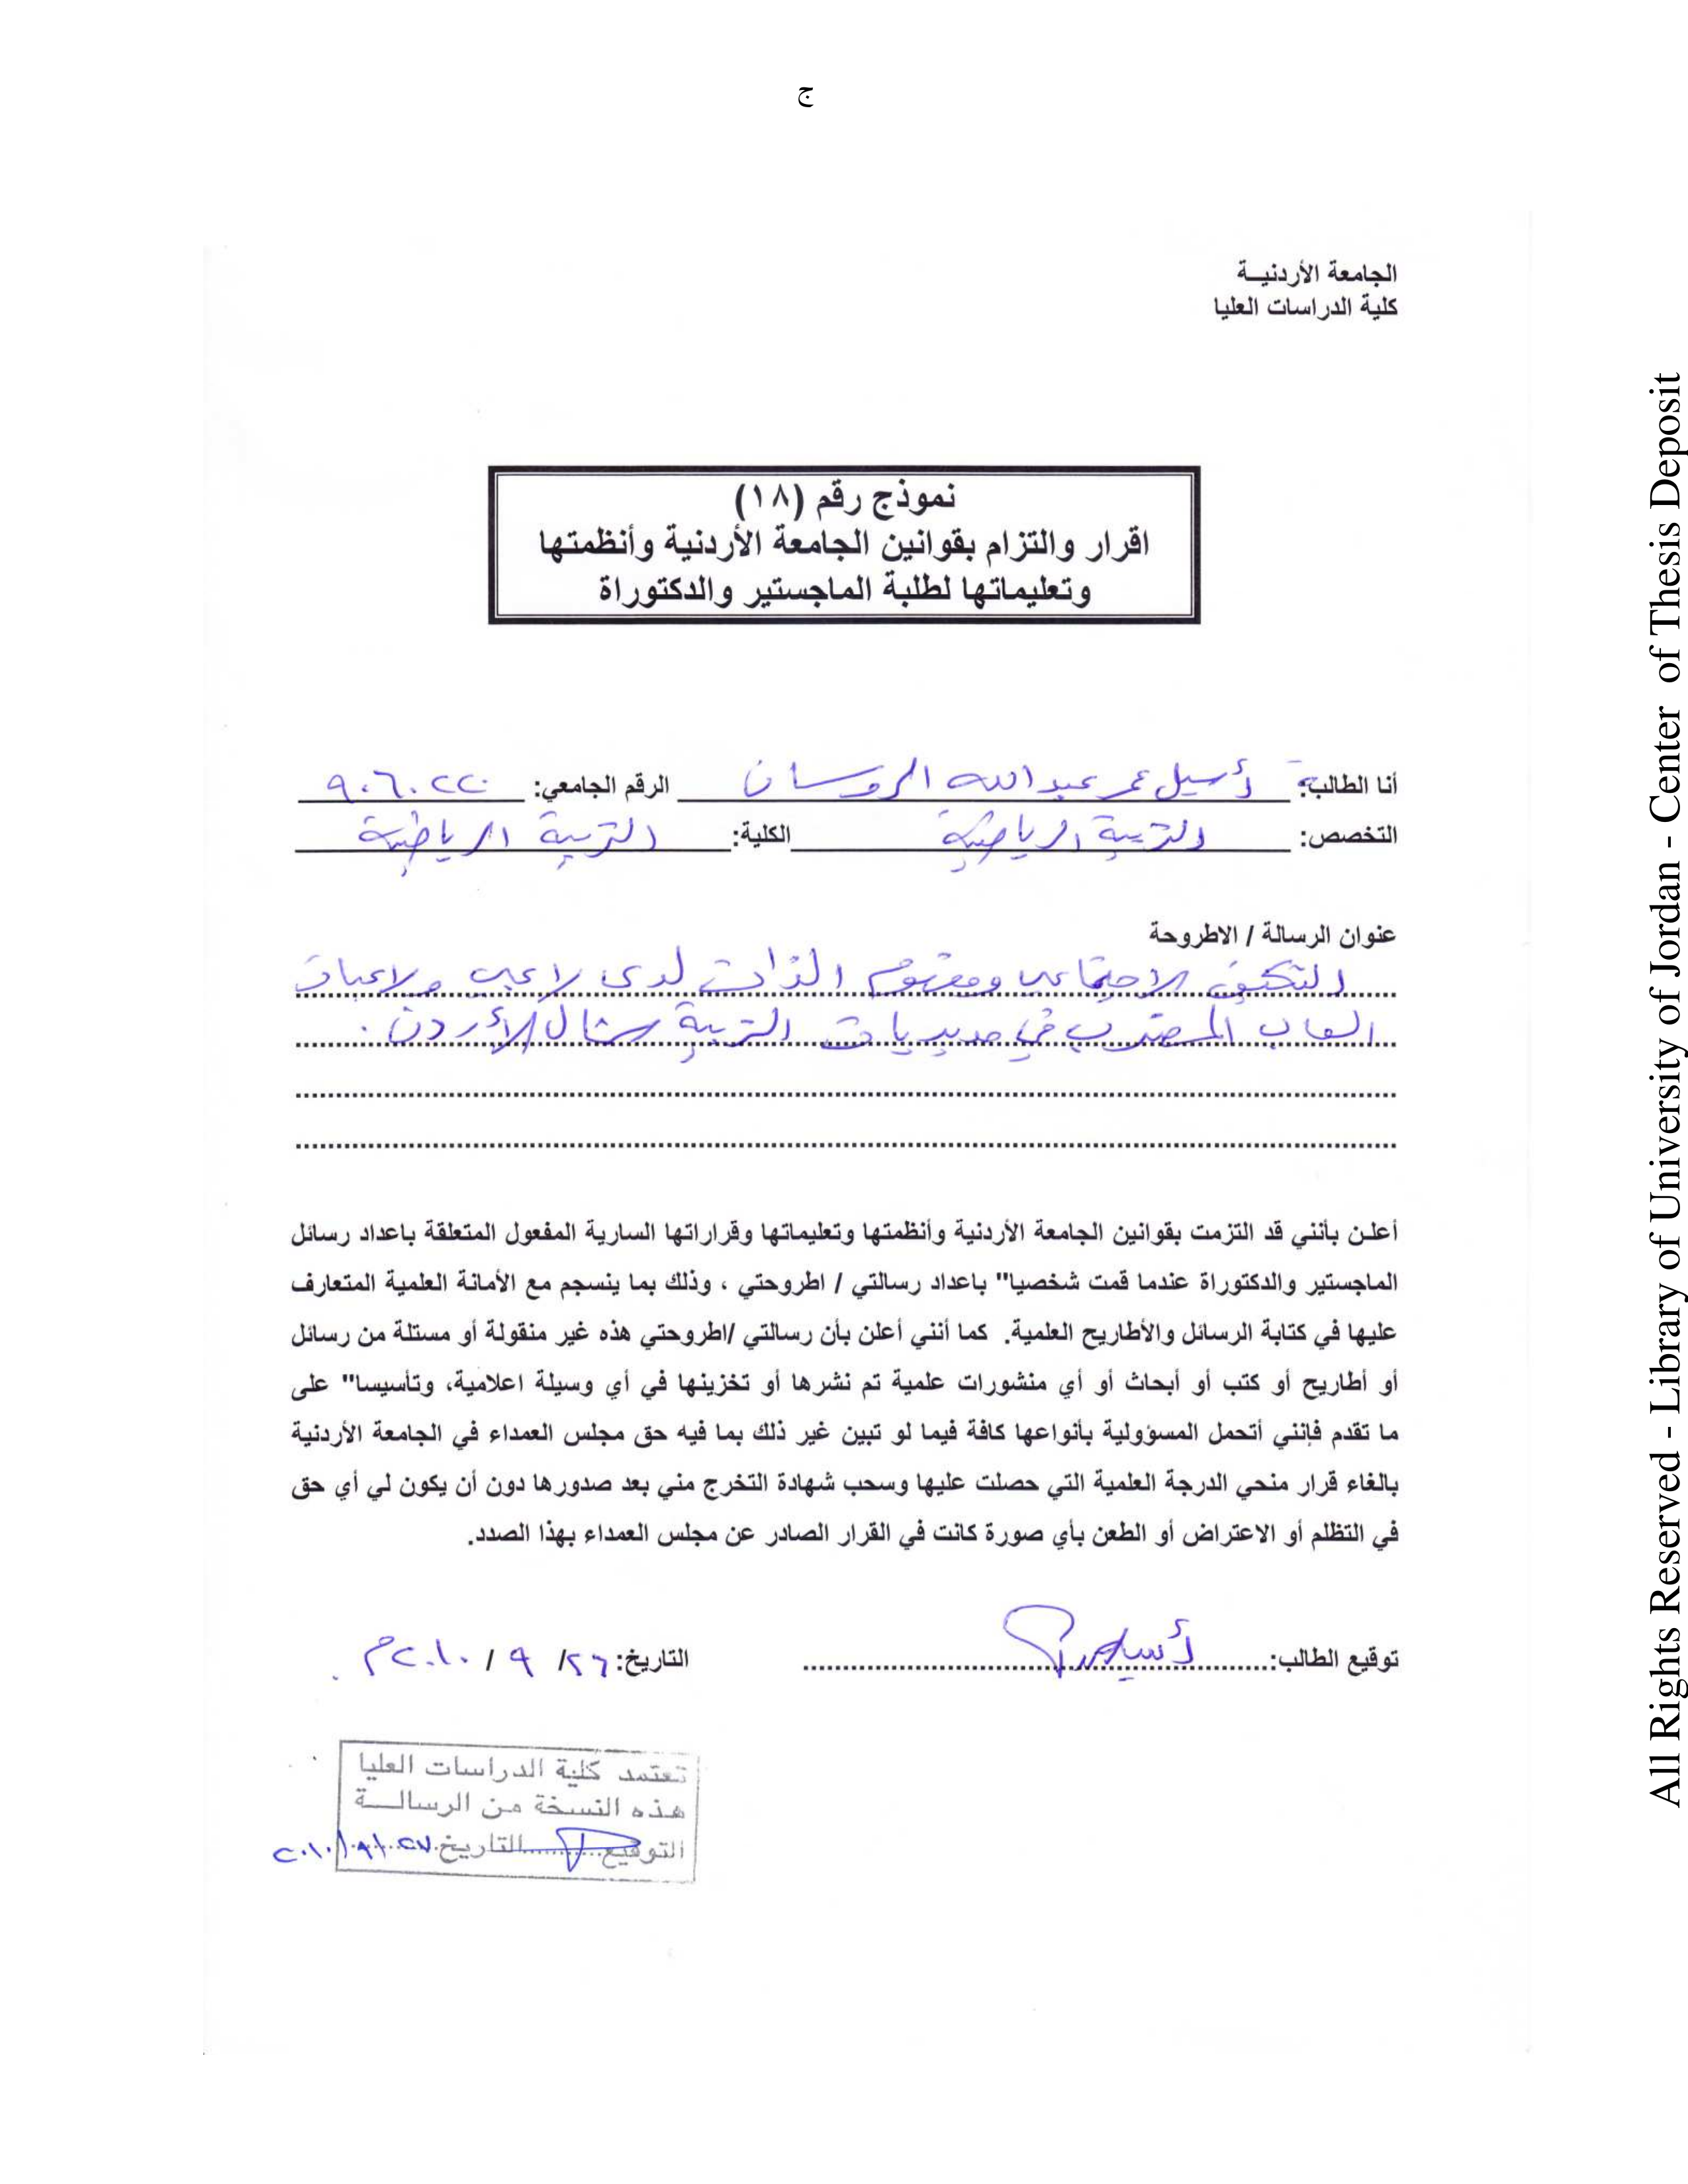 ج
الجامعة الأردنيــة
كلية الدراسات العليا
نموذج رقم (١٨)
اقرار والتزام بقوانين الجامعة الأردنية وأنظمتها
وتعليماتها لطلبة الماجستير والدكتوراة
أنا الطالبة: أسيل عمر عبدالله الروسان الرقم الجامعي: ٩٠٦٠٢٢٠
التخصص: التربية الرياضية الكلية: التربية الرياضية
عنوان الرسالة / الاطروحة
التكيف الاجتماعي ومفهوم الذات لدى لاعبي ولاعبات
العاب المضرب في مديريات التربية شمال الأردن.
أعلـن بأنني قد التزمت بقوانين الجامعة الأردنية وأنظمتها وتعليماتها وقراراتها السارية المفعول المتعلقة باعداد رسائل
الماجستير والدكتوراة عندما قمت شخصيا" باعداد رسالتي / اطروحتي ، وذلك بما ينسجم مع الأمانة العلمية المتعارف
عليها في كتابة الرسائل والأطاريح العلمية. كما أنني أعلن بأن رسالتي /اطروحتي هذه غير منقولة أو مستلة من رسائل
أو أطاريح أو كتب أو أبحاث أو أي منشورات علمية تم نشرها أو تخزينها في أي وسيلة اعلامية، وتأسيسا" على
ما تقدم فإنني أتحمل المسؤولية بأنواعها كافة فيما لو تبين غير ذلك بما فيه حق مجلس العمداء في الجامعة الأردنية
بالغاء قرار منحي الدرجة العلمية التي حصلت عليها وسحب شهادة التخرج مني بعد صدورها دون أن يكون لي أي حق
في التظلم أو الاعتراض أو الطعن بأي صورة كانت في القرار الصادر عن مجلس العمداء بهذا الصدد.
توقيع الطالب: التاريخ: ٢٦/ ٩ / ٢٠١٠م.
تعتمد كلية الدراسات العليا
هذه النسخة من الرسالــة
التوقيع التاريخ ٢٧/٩/٢٠١٠
All Rights Reserved - Library of University of Jordan - Center of Thesis Deposit